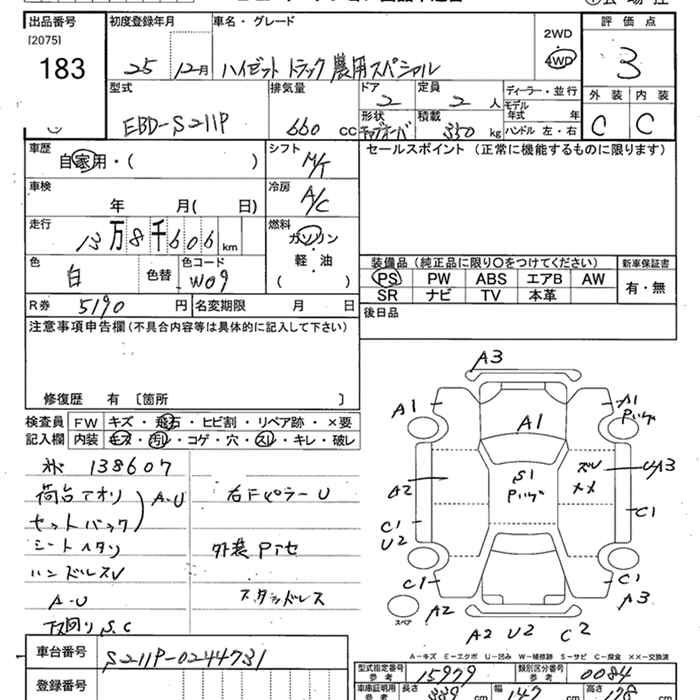 出品番号 初度登録年月 車名・グレード 評価点
[2075]
183
25 12月 ハイゼット トラック 農用スペシャル
2WD
4WD
3
型式 排気量 ドア 定員 ディーラー・並行 外装 内装
EBD-S211P 660 CC 2 2 人
モデル年式 年
形状 積載 350 kg ハンドル 左・右
C C
車歴 シフト セールスポイント (正常に機能するものに限ります)
自家用・( ) M/T
車検 冷房
年 月( 日) A/C
走行 燃料
13万8千606 km ガソリン
軽・油
( )
色 色替 色コード
白 W09
装備品 (純正品に限り○をつけてください) 新車保証書
PS PW ABS エアB AW 有・無
SR ナビ TV 本革
R券 5190 円 名変期限 月 日
後日品
注意事項申告欄(不具合内容等は具体的に記入して下さい)
修復歴 有 〔箇所 〕
検査員 FW キズ・飛石・ヒビ割・リペア跡・×要
記入欄 内装 キズ・汚れ・コゲ・穴・スレ・キレ・破レ
138607
荷台アオリ A-U
セットバック
シートヘタリ
ハンドルスレ
A-U
下回りS.C
右Fピラー U
外装
スタッドレス
A3
A1
A1
A1
S1
U A3
A2
C1
C1
U2
C1
C1
A2
A3
スペア
A2 U2 C2
A-キズ E-エクボ U-凹み W-補修跡 S-サビ C-腐食 XX-交換済
車台番号 S211P-0244731
登録番号
型式指定番号 参考 15979 類別区分番号 参考 0084
車庫証明用 参考 長さ 339 cm 幅 147 cm 高さ 178 cm